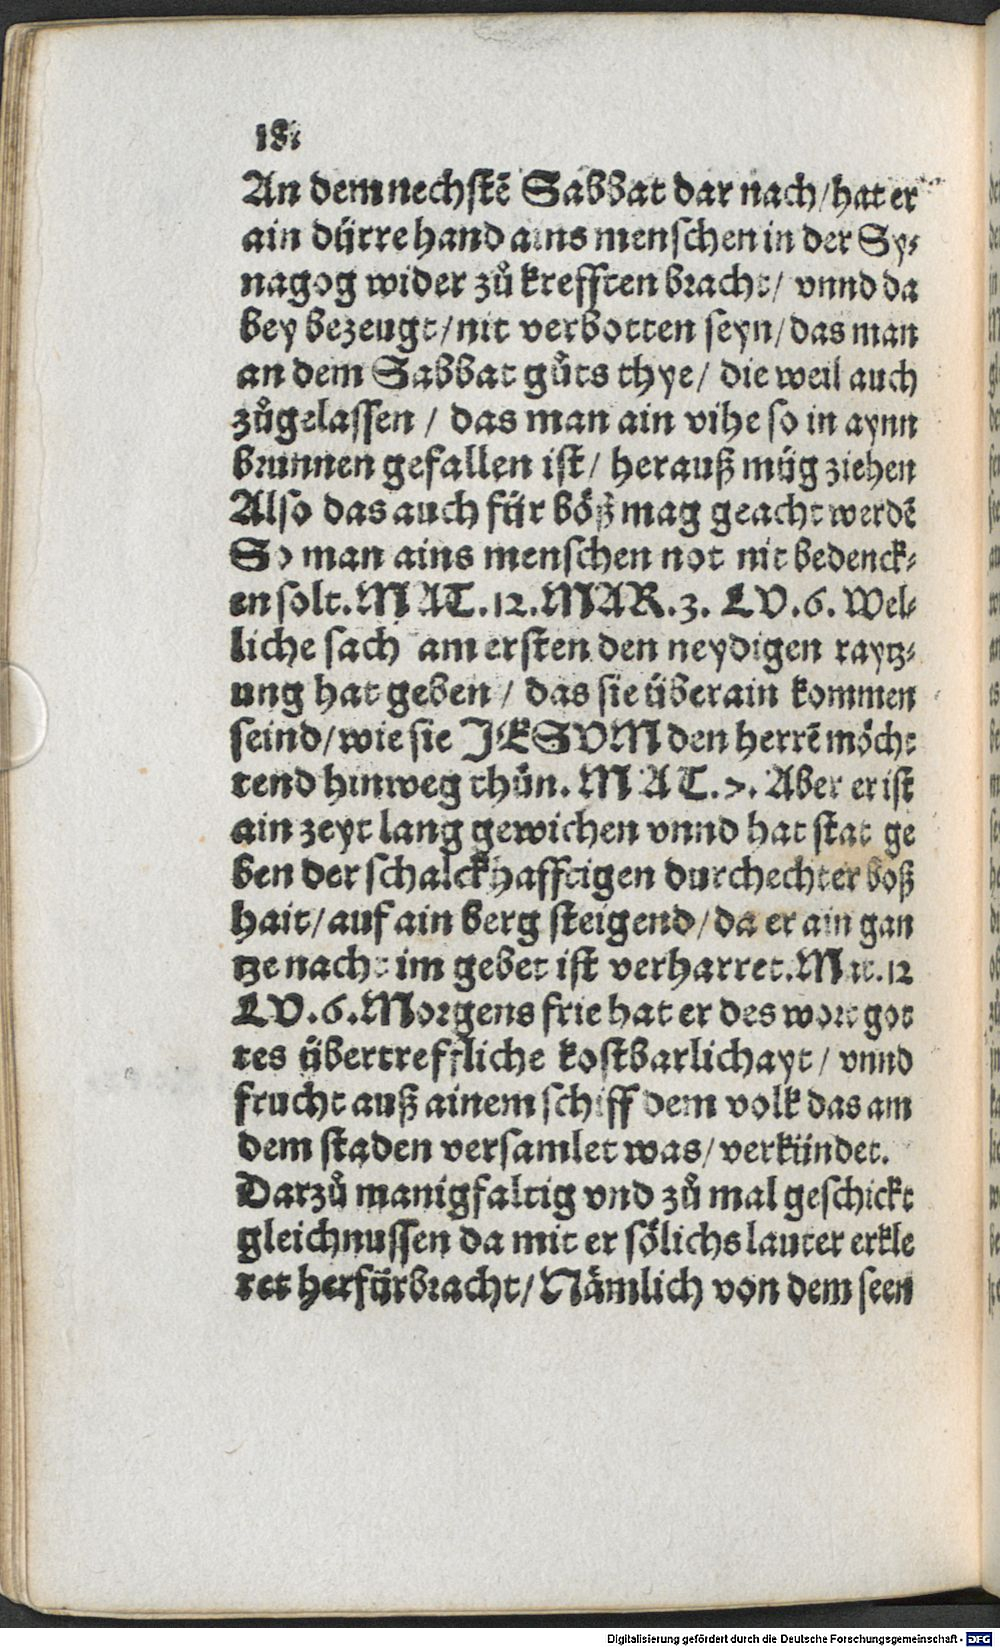 18.
An dem nechstē Sabbat dar nach/hat er
ain dürre hand ains menschen in der Sy⸗
nagog wider zů krefften bracht/ vnnd da
bey bezeugt/nit verbotten seyn/das man
an dem Sabbat gůts thye/ die weil auch
zůgelassen / das man ain vihe so in aynn
brunnen gefallen ist/ herauß müg ziehen
Also das auch für böß mag geacht werdē
So man ains menschen not nit bedenck⸗
en solt. MAT.12.MAR.3. LV.6. Wel⸗
liche sach am ersten den neydigen raytz⸗
ung hat geben / das sie überain kommen
seind/wie sie JESVM den herrē möcht
tend hinweg thůn. MAT.>. Aber er ist
ain zeyt lang gewichen vnnd hat stat ge
ben der schalckhafftigen durchechter boß
hait/auf ain berg steigend/da er ain gan
tze nacht im gebet ist verharret.Mat.12
LV.6.Morgens frie hat er des wort got
tes übertreffliche kostbarlichayt/ vnnd
frucht auß ainem schiff dem volk das am
dem staden versamlet was/verkündet.
Darzů manigfaltig vnd zů mal geschickt
gleichnussen da mit er sölichs lauter erkle
ret herfürbracht/Nämlich von dem seen
Digitalisierung gefördert durch die Deutsche Forschungsgemeinschaft - DFG